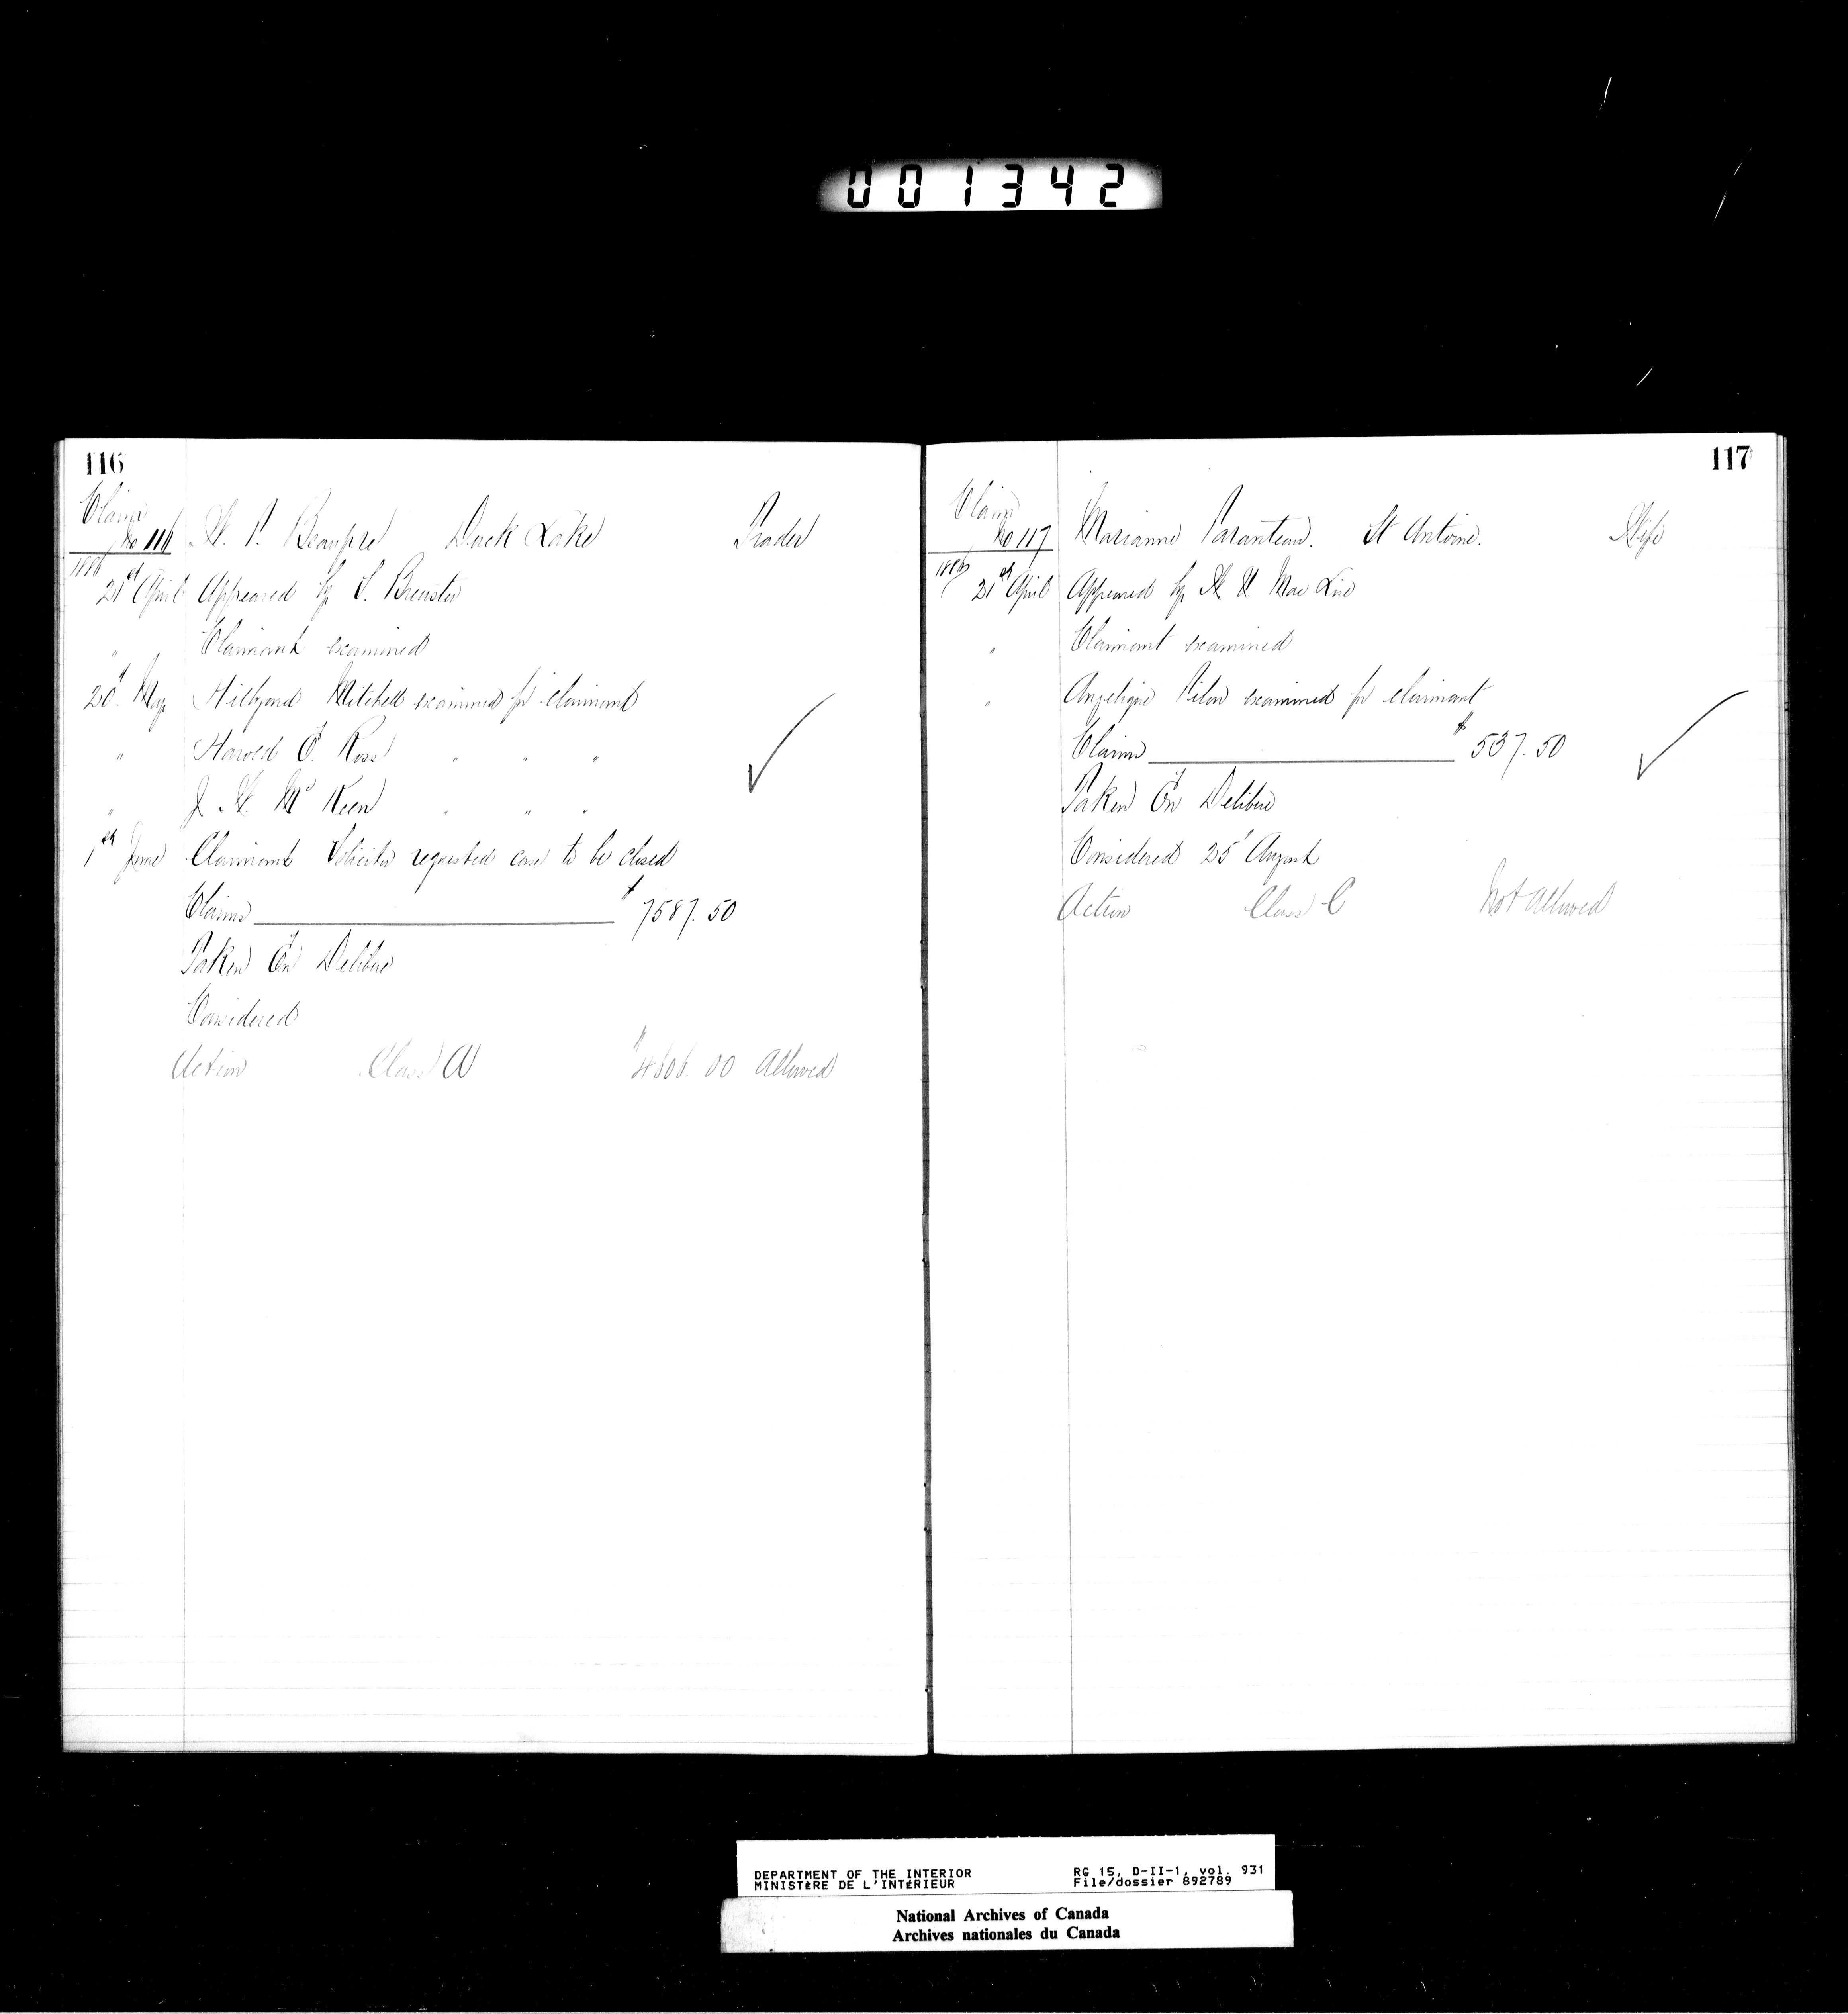 001342
116
Claim
No 116 Beaupre Duck Lake Trader
1886
21st April Appeared by S. Brewster
" Claimant examined
20th May Hillyard Mitchell examined for claimant
" Harold E. Ross " " "
" J. McKeen " " "
1st June Claimants Solicitor requested case to be closed
Claims $7587.50
Taken En Delibere
Considered
Action Class A Allowed
117
Claim
No 117 Marianne Paranteau. St Antoine. Wife
1886
21st April Appeared by Mac Lise
" Claimant examined
" Angelique Pilon examined for claimant
Claims $537.50
Taken En Delibere
Considered 25 August
Action Class C Not Allowed
DEPARTMENT OF THE INTERIOR RG 15, D-II-1, vol. 931
MINISTÈRE DE L'INTÉRIEUR File/dossier 892789
National Archives of Canada
Archives nationales du Canada